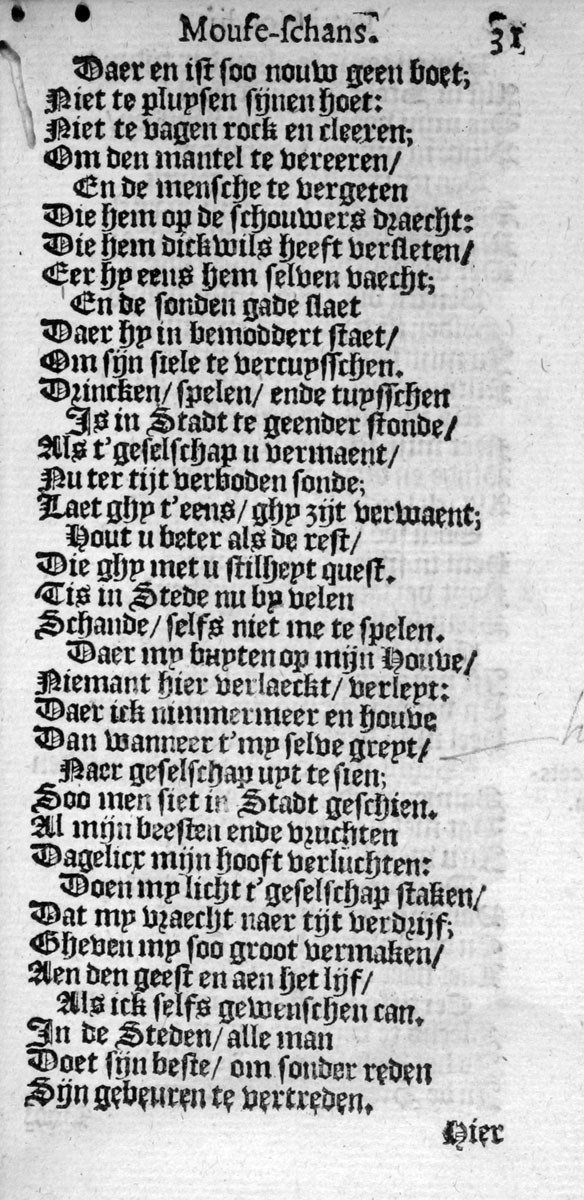 Mouse-schans. 31
Daer en ist soo nouw geen boet;
Niet te pluysen sijnen hoet:
Niet te vagen rock en cleeren;
Om den mantel te vereeren/
En de mensche te vergeten
Die hem op de schouwers draecht:
Die hem dickwils heeft versleten/
Eer hy eens hem selven vaecht;
En de sonden gade slaet
Daer hy in bemoddert staet/
Om sijn siele te vercuysschen.
Drincken/ spelen/ ende tuysschen
Is in Stadt te geender stonde/
Als t'geselschap u vermaent/
Nu ter tijt verboden sonde;
Laet ghy t'eens/ ghy zijt verwaent;
Hout u beter als de rest/
Die ghy met u stilheyt quest.
Tis in Stede nu by velen
Schande/ selfs niet me te spelen.
Daer my buyten op mijn Houve/
Niemant hier verlaeckt/ verleyt:
Daer ick nimmermeer en houve
Dan wanneer t'my selve greyt/
Naer geselschap uyt te sien;
Soo men siet in Stadt geschien.
Al mijn beesten ende vruchten
Dagelicx mijn hooft verluchten:
Doen my licht t'geselschap staken/
Dat my vraecht naer tijt verdrijf;
Gheven my soo groot vermaken/
Aen den geest en aen het lijf/
Als ick selfs gewenschen can.
In de Steden/ alle man
Doet sijn beste/ om sonder reden
Sijn gebeuren te vertreden.
Hier